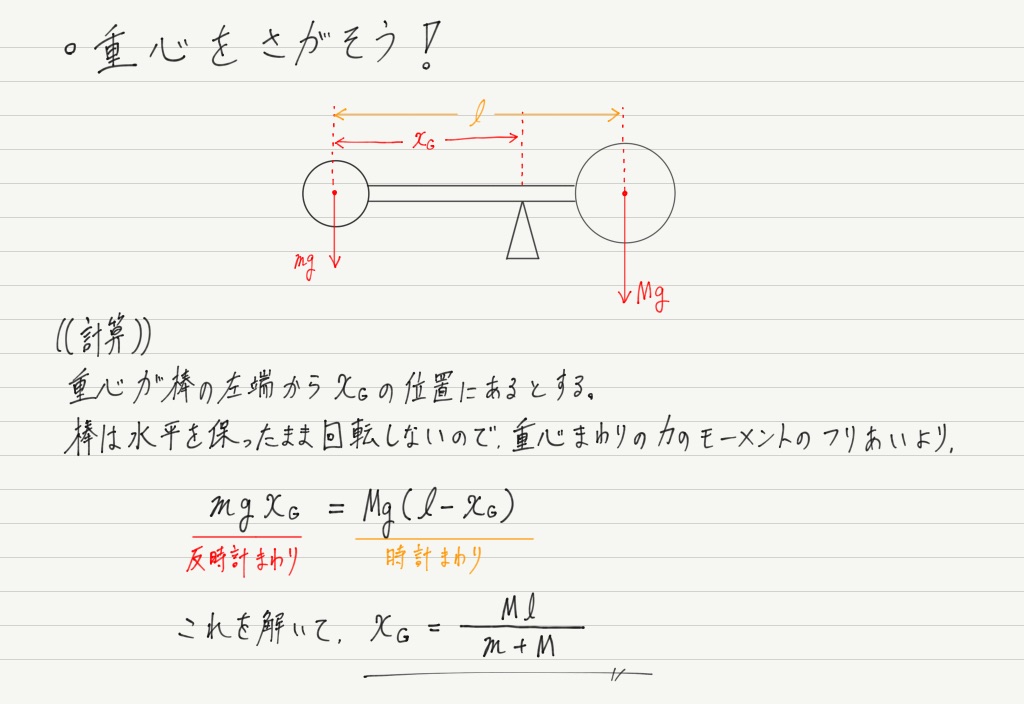 ○重心をさがそう!
l
x_G
mg
Mg
((計算))
重心が棒の左端からx_Gの位置にあるとする。
棒は水平を保ったまま回転しないので、重心まわりの力のモーメントのフリあいより、
mgx_G = Mg(l-x_G)
反時計まわり 時計まわり
これを解いて、x_G = Ml/(m+M)